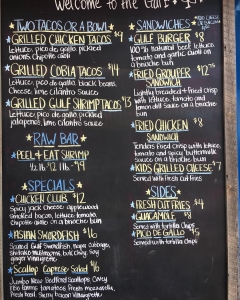 Welcome to the Gulf
TWO TACOS OR A BOWL
GRILLED CHICKEN TACOS $9
Lettuce, pico de gallo, pickled
onions, Chipotle aioli
GRILLED COBIA TACOS $14
Lettuce, pico de gallo, black beans,
Cheese, lime cilantro sauce
GRILLED GULF SHRIMP TACOS $13
Lettuce, pico de gallo, pickled
jalapeños, lime cilantro sauce
RAW BAR
PEEL & EAT SHRIMP
1/2 lb $12 1 lb $19
SPECIALS
CHICKEN CLUB $12
Spicy jack cheese, applewood
smoked bacon, lettuce, tomato,
Chipotle aioli on a brioche bun
ASIAN SWORDFISH $16
Seared Gulf Swordfish, napa cabbage,
Shiitake mushrooms, bok choy, soy
ginger vinaigrette
Scallop Caprese Salad $16
Jumbo New Bedford Scallops over
heirloom tomatoes, fresh mozzarella,
fresh basil, Sherry bacon Vinaigrette
SANDWICHES
GULF BURGER $8
100% natural beef, lettuce,
tomato and garlic aioli on
a brioche bun
FRIED GROUPER $12.75
SANDWICH
Lightly breaded & fried crisp
with lettuce, tomato and
lemon dill sauce on a
brioche bun
FRIED CHICKEN $8
SANDWICH
Tenders fried crisp with lettuce,
tomato and spicy buttermilk
sauce on a brioche bun
KIDS GRILLED CHEESE $7
Served with fresh cut fries
SIDES
FRESH CUT FRIES $4
GUACAMOLE $8
Served with tortilla chips
PICO DE GALLO $5
Served with tortilla chips